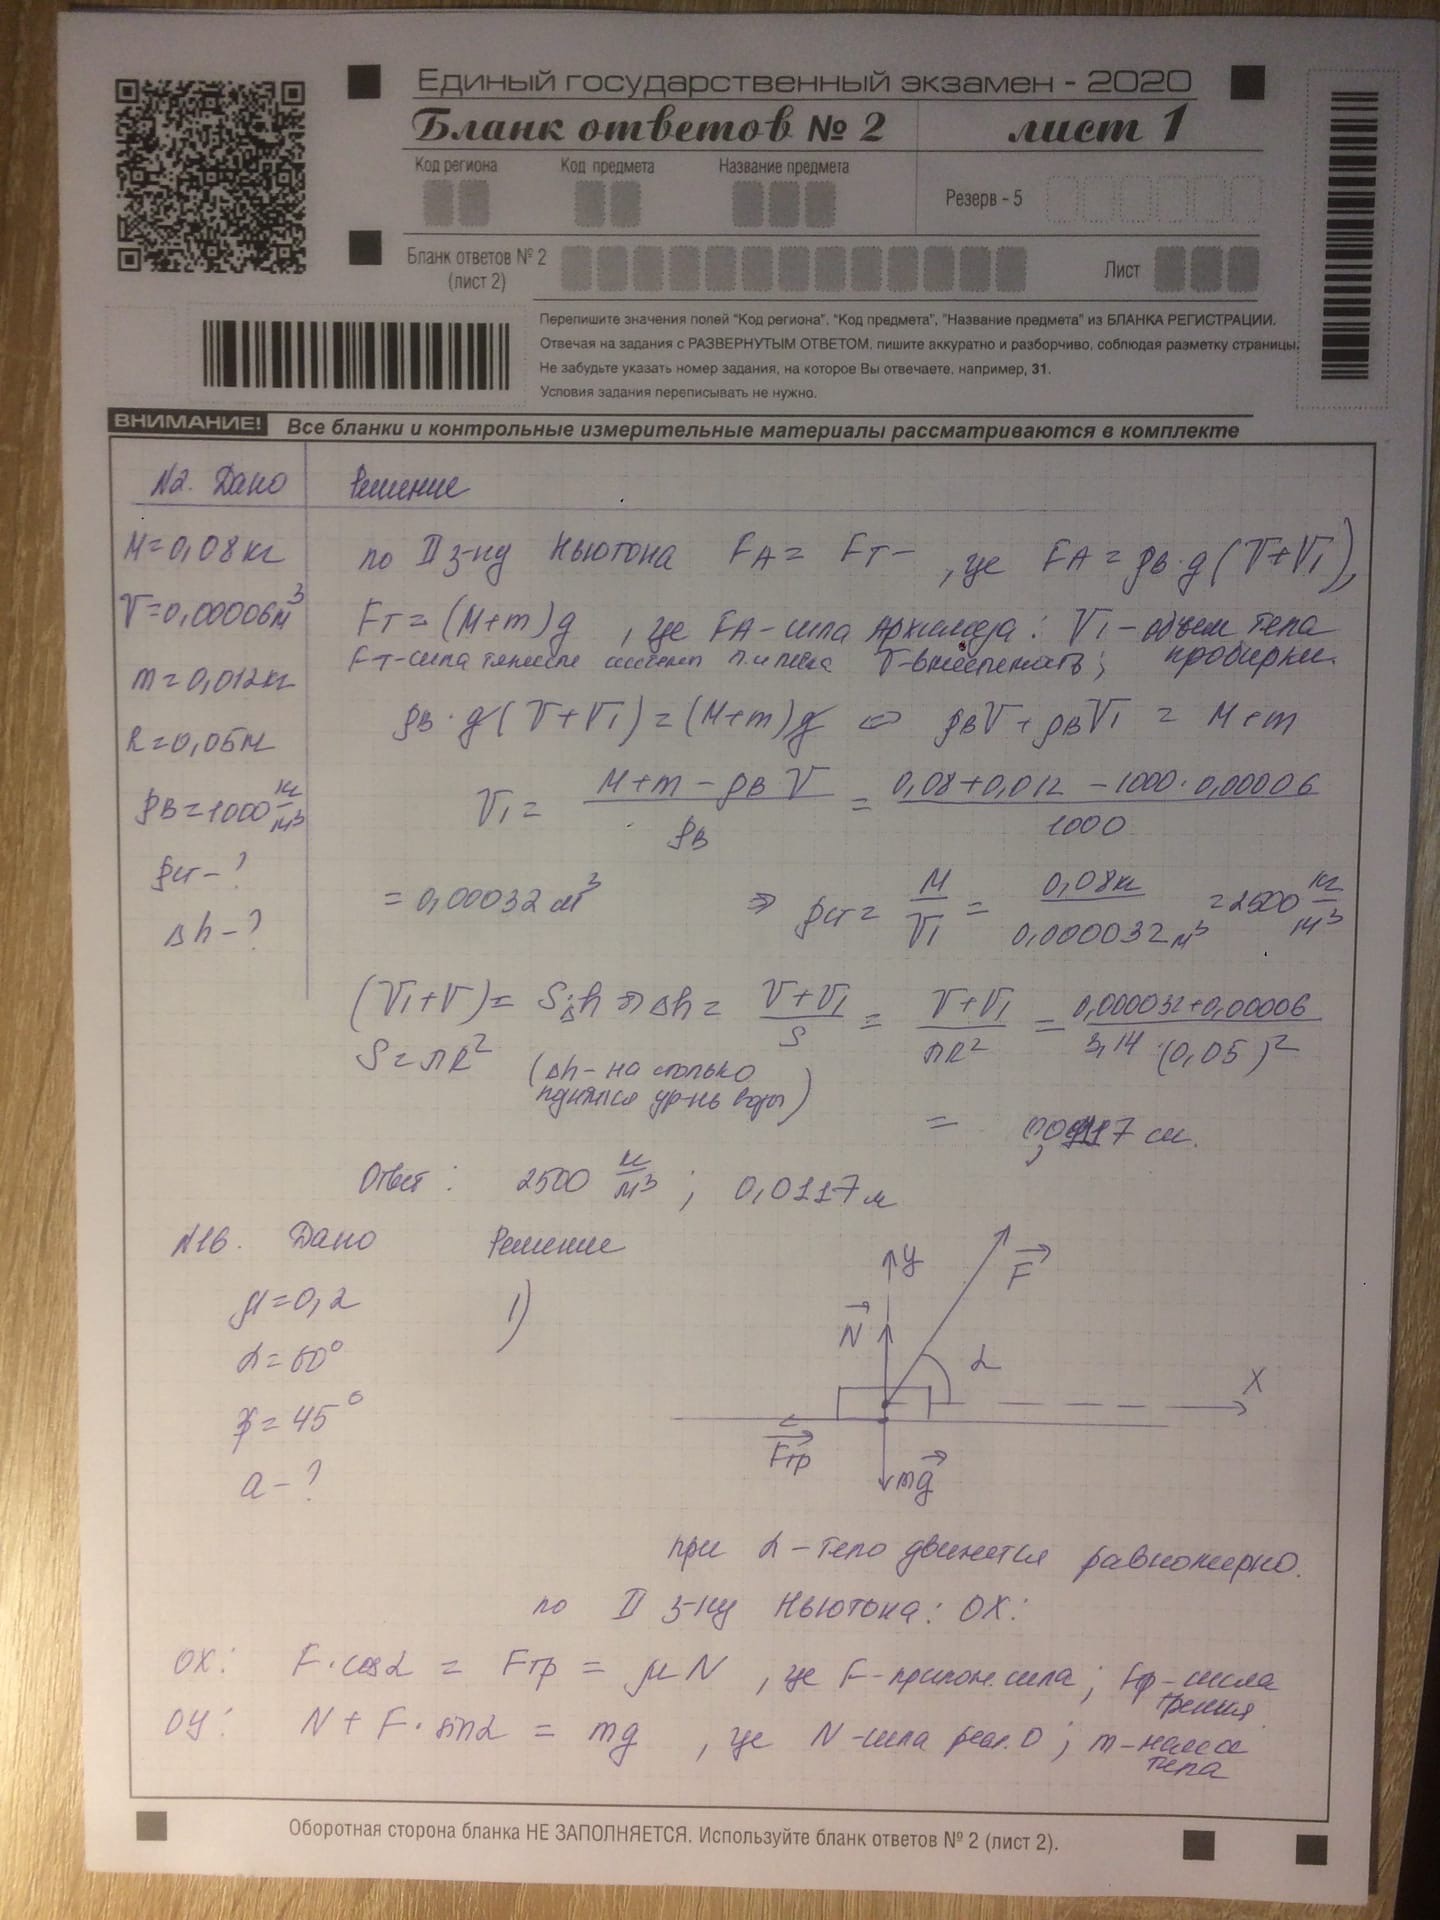 Единый государственный экзамен - 2020
Бланк ответов № 2 лист 1
Код региона Код предмета Название предмета
Резерв - 5
Бланк ответов № 2
(лист 2)
Лист
Перепишите значения полей "Код региона", "Код предмета", "Название предмета" из БЛАНКА РЕГИСТРАЦИИ.
Отвечая на задания с РАЗВЕРНУТЫМ ОТВЕТОМ, пишите аккуратно и разборчиво, соблюдая разметку страницы.
Не забудьте указать номер задания, на которое Вы отвечаете, например, 31.
Условия задания переписывать не нужно.
ВНИМАНИЕ! Все бланки и контрольные измерительные материалы рассматриваются в комплекте
N2. Дано Решение
M=0,08кг
V=0,00006м³
m=0,012кг
R=0,05м
ρв=1000 кг/м³
ρст-?
Δh-?
по II з-ну Ньютона FA = FT , где FA = ρв·g(V+V1),
FT = (M+m)g , где FA-сила Архимеда; V1-объем тела пробирки.
FT-сила тяжести системы
ρв·g(V+V1)=(M+m)g ⇔ ρвV+ρвV1 = M+m
V1 = (M+m-ρвV)/ρв = (0,08+0,012-1000·0,00006)/1000
= 0,00032 м³ ⇒ ρст = M/V1 = 0,08кг/0,000032м³ = 2500 кг/м³
(V1+V)= S·Δh ⇒ Δh = (V+V1)/S = (V+V1)/πR² = (0,000032+0,00006)/(3,14·(0,05)²)
S=πR² (Δh-на сколько
поднялся ур-нь воды)
Ответ: 2500 кг/м³; 0,0117м
N16. Дано Решение
μ=0,2
α=60°
=45°
a-?
1)
y
F
N
α
X
Fтр
mg
при α-тело движется равномерно.
по II з-ну Ньютона: OX:
OX: F·cosα = Fтр = μN , где F-прилож. сила; Fтр-сила трения
OY: N+F·sinα = mg , где N-сила реак. О; m-масса тела
Оборотная сторона бланка НЕ ЗАПОЛНЯЕТСЯ. Используйте бланк ответов № 2 (лист 2).